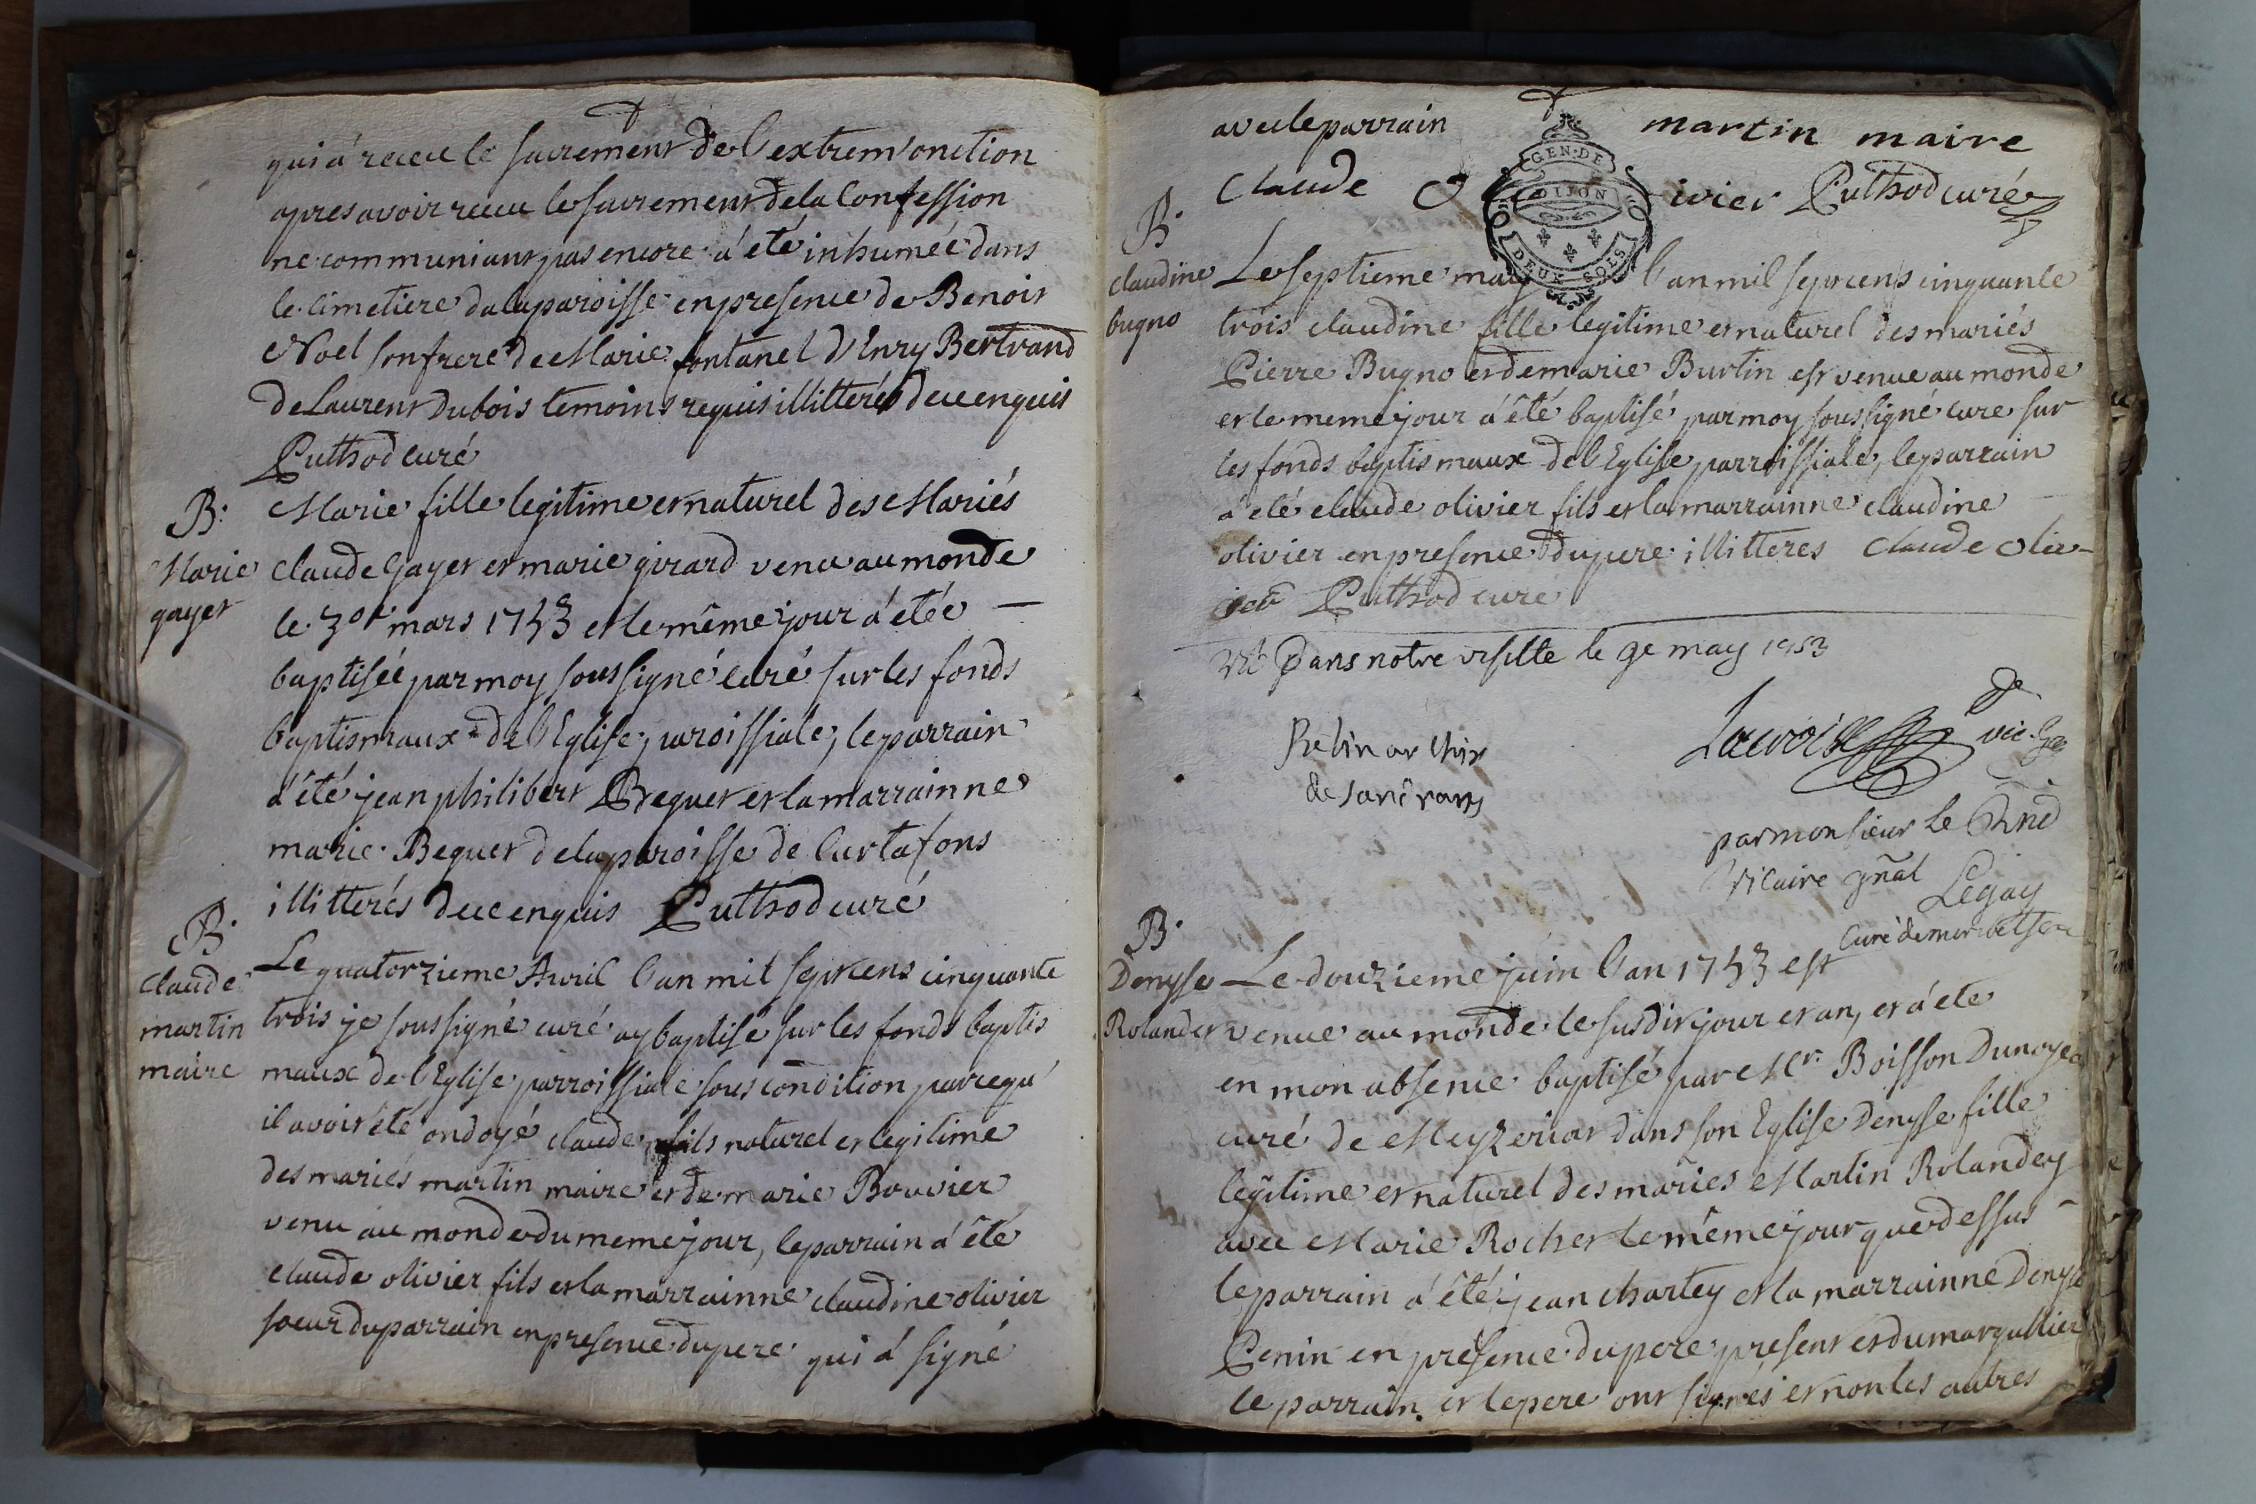 qui á receu le sacrement de l'extrem'onction
apres avoir receu le sacrement de la Confession
ne communiant pas encore á été inhumée dans
le cimetiere de la paroisse en presence de Benoit
Noel son frere de Marie fontanel d'Enry Bertrand
de Laurent Dubois temoins requis illitterés de ce enquis
Puthod curé
B.
Marie
gayet
Marie fille legitime et naturel des Mariés
claude Gayet et marie girard venu au monde
le 30e mars 1753 et le même jour á étée —
baptisée par moy soussigné curé sur les fonds
baptismaux de l'Eglise paroissiale, le parrain
á été jean philibert Breguet et la marrainne
marie Beguet de la paroisse de Curtafons
illitterés de ce enquis Puthod curé
B.
claude
martin
maire
Le quatorzieme Avril l'an mil sept cens cinquante
trois je soussigné curé ay baptisé sur les fonds baptis
maux de l'Eglise parroissiale sous condition parcequ'
il avoit été ondoyé claude fils naturel et legitime
des mariés martin maire et de marie Bouvier
venu au monde du meme jour, le parrain á été
claude olivier fils et la marrainne claudine olivier
soeur du parrain en presence du pere qui á signé
avec le parrain martin maire
Claude Ol ivier Puthod curé
GEN. DE
DIJON
DEUX SOLS
B.
claudine
bugno
Le septieme may l'an mil sept cens cinquante
trois claudine fille legitime et naturel des mariés
Pierre Bugno et de marie Burtin est venue au monde
et le meme jour á été baptisé par moy soussigné cure sur
les fonds baptismaux de l'Eglise parroissiale, le parrain
á été claude olivier fils et la marrainne claudine
olivier en presence du pere illitteres Claude oliv-
Puthod curé
Vû Dans notre visitte le 9e may 1753
de
vic. g
de
par monsieur Le
Vicaire gñal Legay
Curé de
B.
Denyse
Rolandet
Le douzieme juin l'an 1753 est
venue au monde le susdit jour et an, et á ete
en mon absence baptisé par Mr. Boisson Dunoyer
curé de Meyzeriat dans son Eglise Denyse fille
legitime et naturel des mariés Martin Rolandey
avec Marie Rochet le même jour que dessus
le parrain á été jean chartey et la marrainne Denyse
Penin en presence du pere present et du margullier
le parrain et le pere ont signés et non les autres